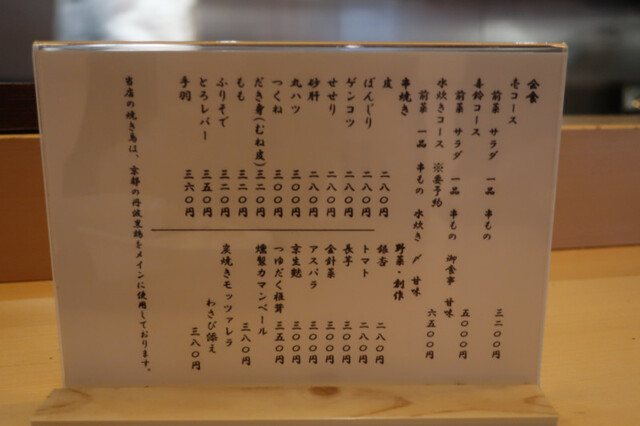 会食
壱コース
前菜 サラダ 一品 串もの 三二〇〇円
コース
前菜 サラダ 一品 串もの 御食事 甘味 五〇〇〇円
水炊きコース ※要予約
前菜 一品 串もの 水炊き 〆 甘味 六五〇〇円
串焼き
皮 二八〇円
ぼんじり 二八〇円
ゲンコツ 二八〇円
せせり 二八〇円
砂肝 二八〇円
丸ハツ 三〇〇円
つくね 三〇〇円
だき身(むね皮) 三二〇円
もも 三二〇円
ふりそで 三二〇円
とろレバー 三五〇円
手羽 三六〇円
野菜・創作
銀杏 二八〇円
トマト 二八〇円
長芋 三〇〇円
金針菜 三〇〇円
アスパラ 三〇〇円
京生麩 三〇〇円
つゆだく椎茸 三五〇円
燻製カマンベール 三八〇円
炭焼きモッツァレラ
わさび添え 三八〇円
当店の焼き鳥は、京都の丹波黒鶏をメインに使用しております。